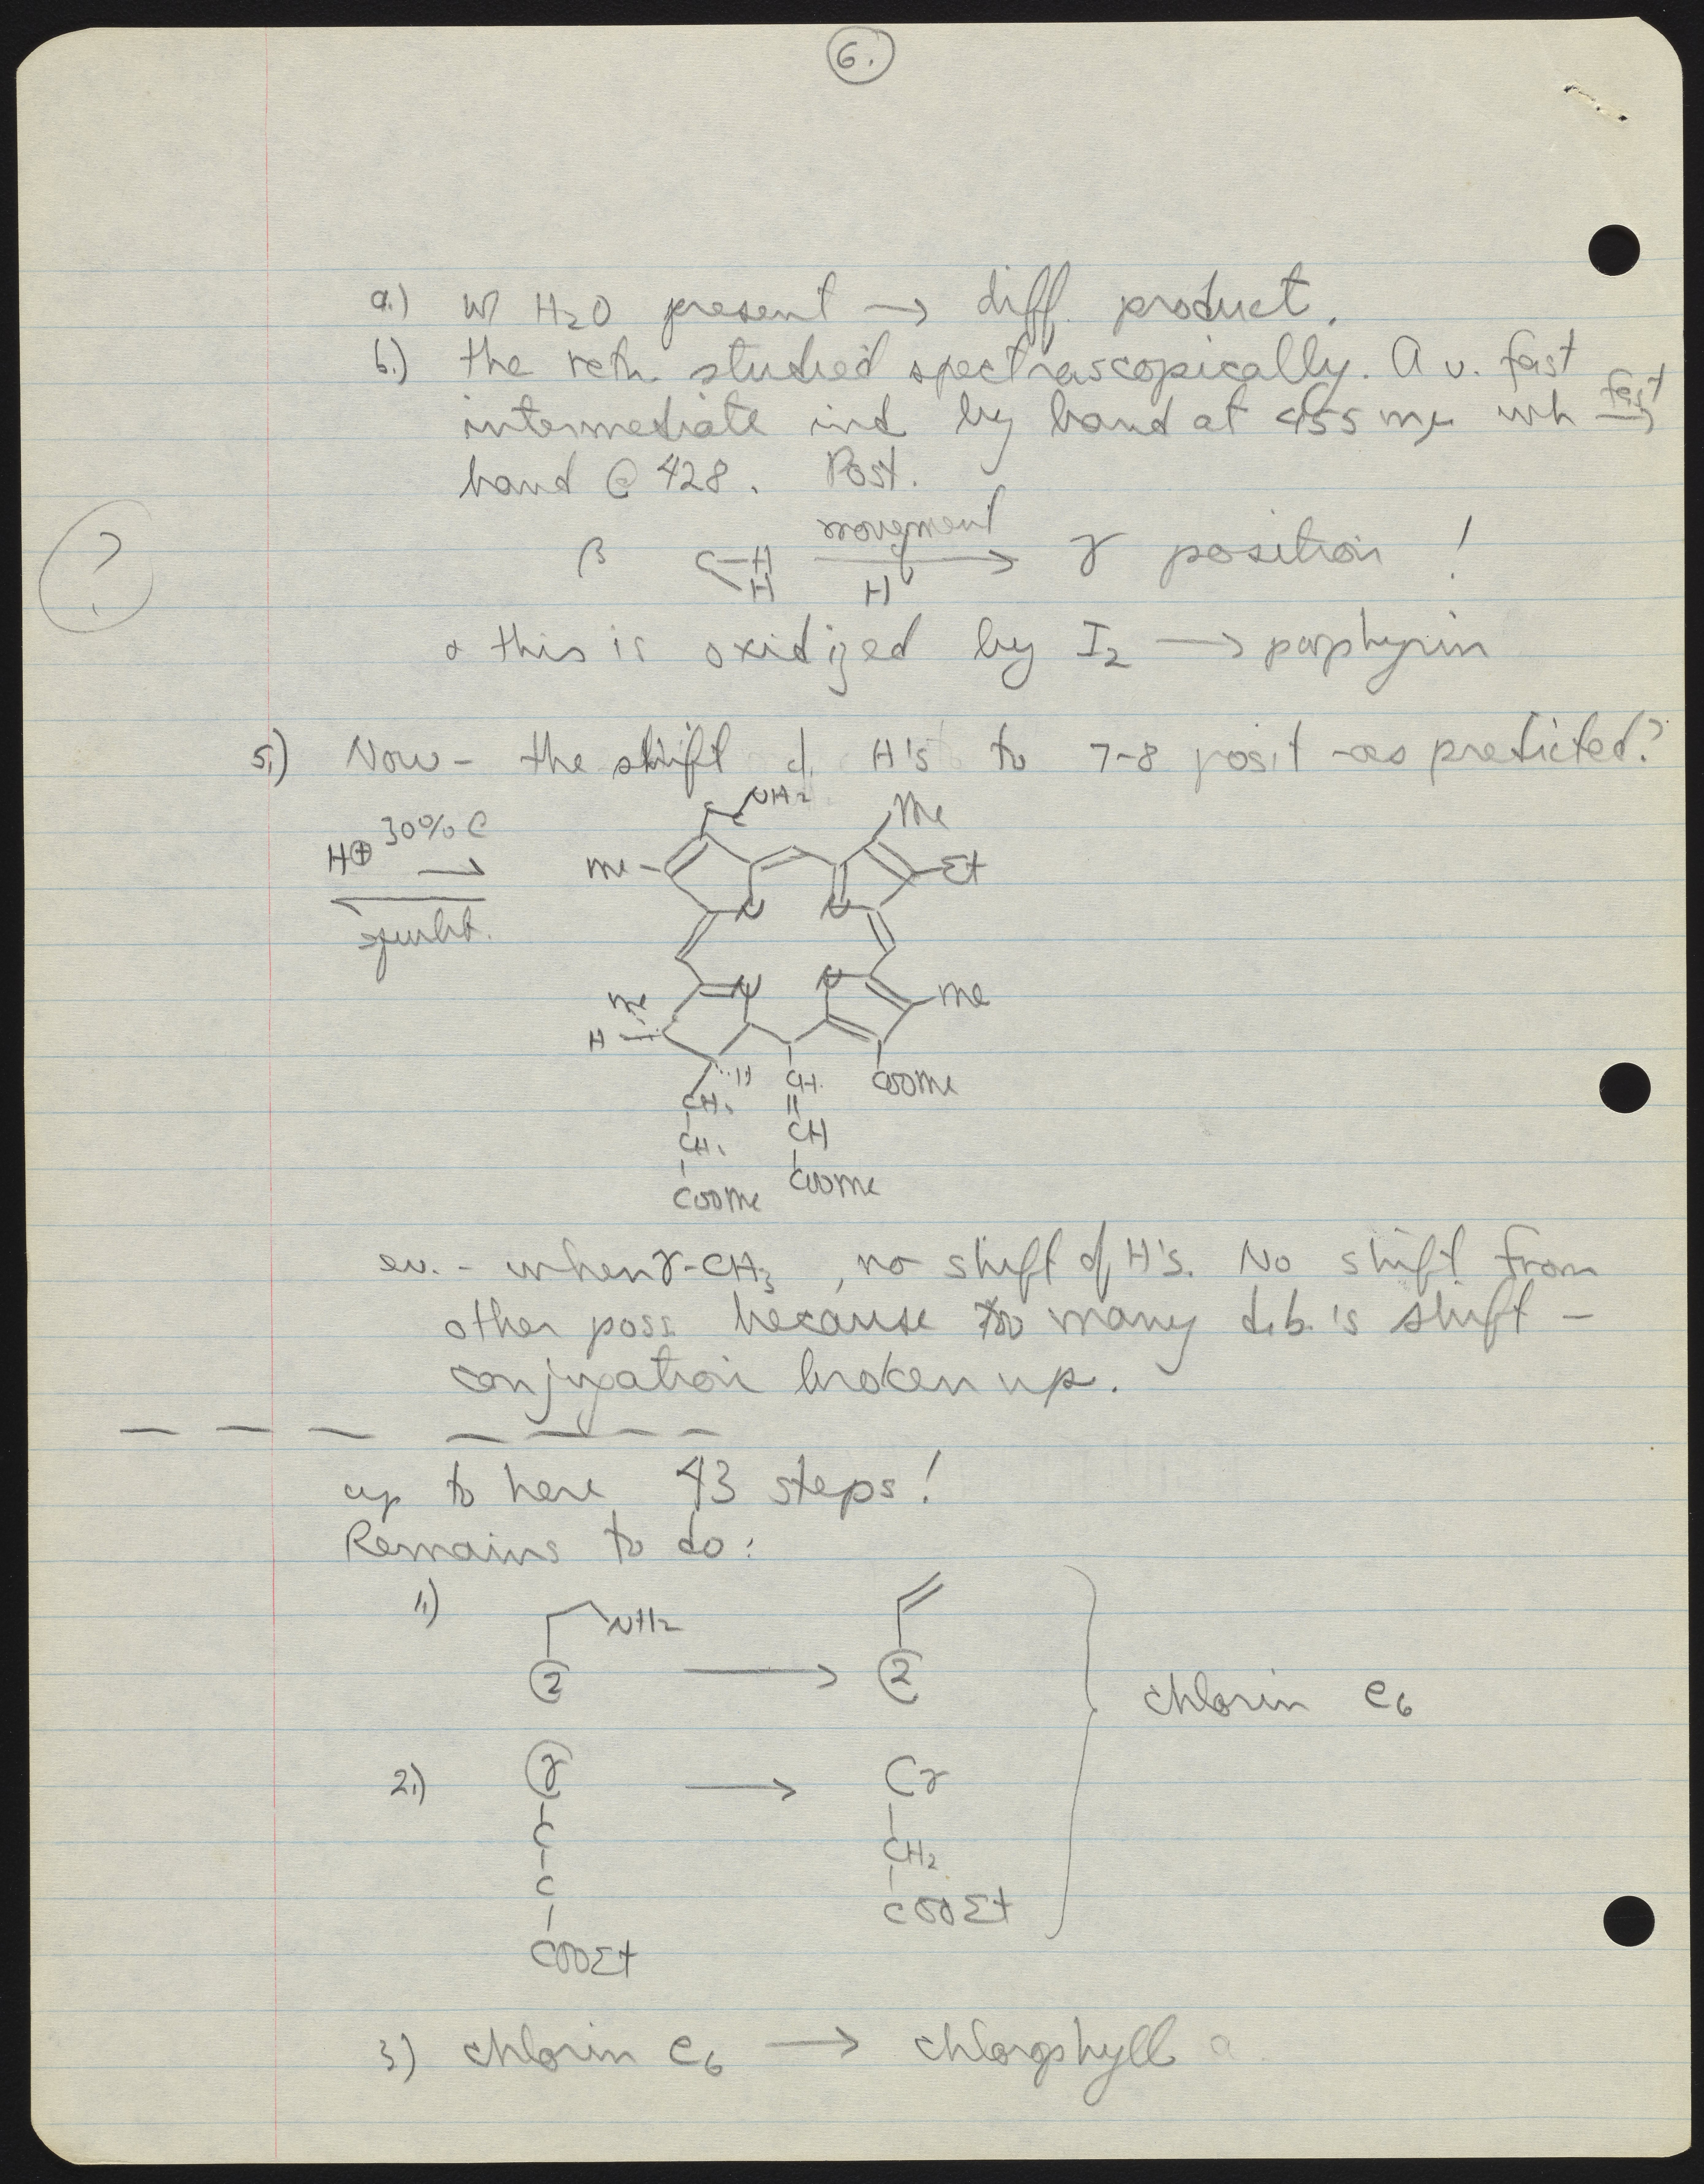 6.
a.) w/ H2O present → diff. product.
b.) the rctn. studied spectrascopically. A v. fast
intermediate ind by band at 455 mμ wh fast →
band @ 428. Post.
?
β C-H H movement H → γ position !
& this is oxidized by I2 → porphyrin
5.) Now - the shift of H's to 7-8 posit - as predicted?
H⊕ 30% →
NH2
Me
Me
Et
N N
N N
Me
Me
H
H
CH2
CH2
COOMe
CH
CH
COOMe
COOMe
ev. - when γ-CH3, no shift of H's. No shift from
other poss. because too many d.b.'s shift -
conjugation broken up.
up to here 43 steps!
Remains to do:
1.) NH2
2 → 2
chlorin e6
2.) γ → Cγ
C CH2
C COOEt
COOEt
3) chlorin e6 → chlorophyll a